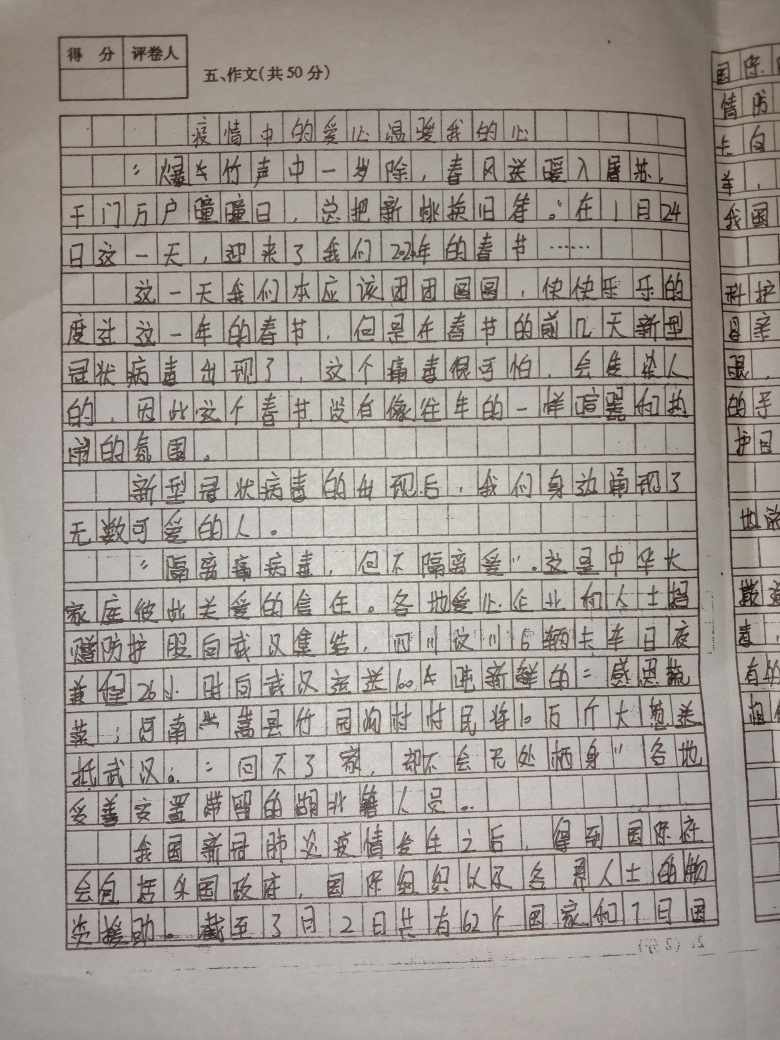 得 分 评卷人
五、作文(共50分)
疫情中的爱心温暖我的心
“爆竹声中一岁除,春风送暖入屠苏,
千门万户曈曈日,总把新桃换旧符。”在1月24
日这一天,迎来了我们2020年的春节……
这一天我们本应该团团圆圆,快快乐乐的
度过这一年的春节,但是在春节的前几天新型
冠状病毒出现了,这个病毒很可怕,会传染人
的,因此这个春节没有像往年的一样喧嚣和热
闹的氛围。
新型冠状病毒的出现后,我们身边涌现了
无数可爱的人。
“隔离病毒,但不隔离爱”。这是中华大
家庭彼此关爱的信任。各地爱心企业和人士捐
赠防护服向武汉集结,四川汶川6辆卡车日夜
兼程26小时向武汉运送100吨新鲜的“感恩蔬
菜;河南嵩县竹园沟村村民将10万斤大葱送
抵武汉。“回不了家,却不会无处栖身”各地
妥善安置滞留的湖北籍人员。
我国新冠肺炎疫情发生之后,得到国际社
会包括外国政府,国际组织以及各界人士的物
资援助。截至3月2日共有62个国家和7目国
国际
情防
卡包
羊,
我国
科护
母亲
眼,
的手
护目
地
散
毒
有的
相
2.(2分)